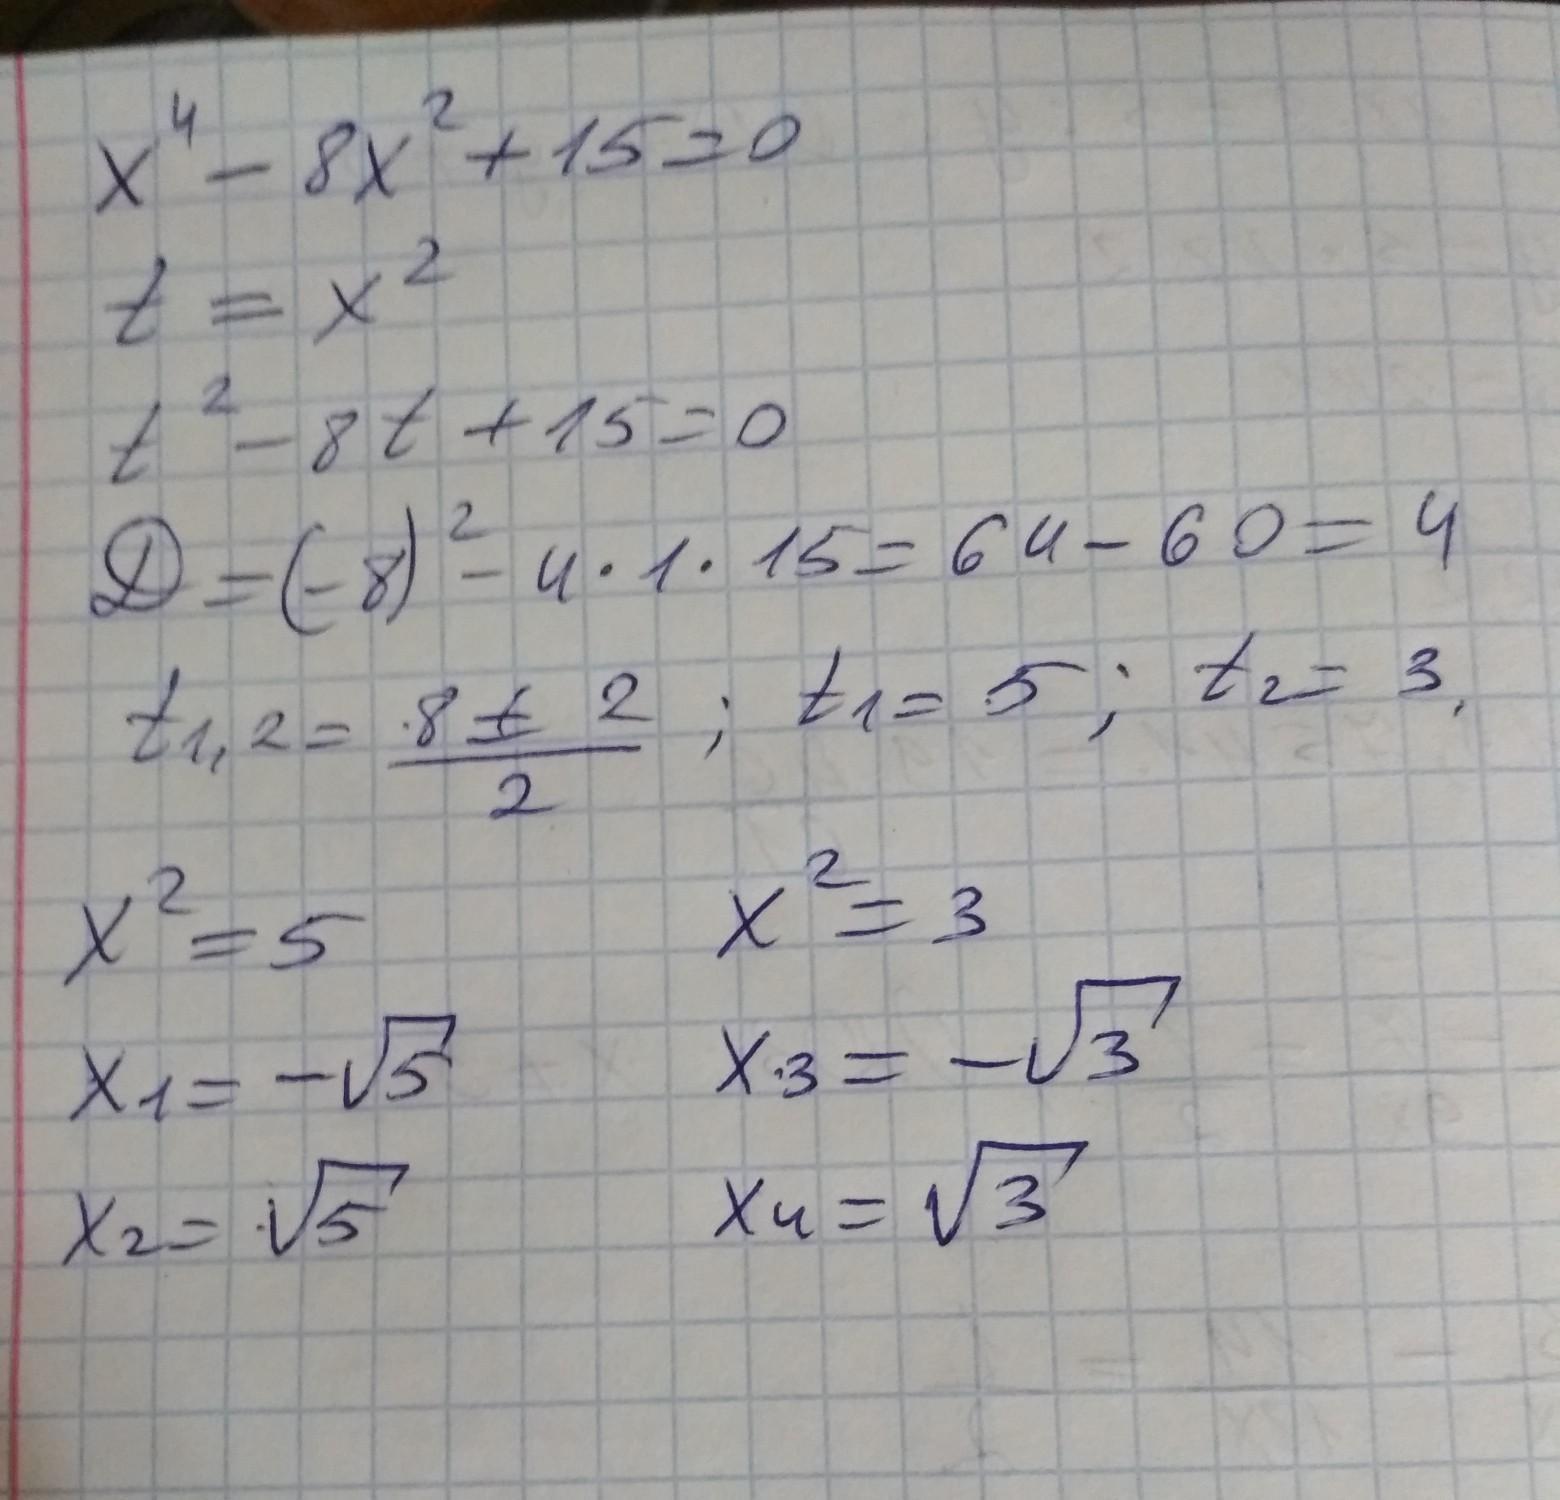 x⁴ - 8x² + 15 = 0
t = x²
t² - 8t + 15 = 0
D = (-8)² - 4 · 1 · 15 = 64 - 60 = 4
t₁,₂ = (8 ± 2)/2 ; t₁ = 5 ; t₂ = 3.
x² = 5 x² = 3
x₁ = -√5 x₃ = -√3
x₂ = √5 x₄ = √3